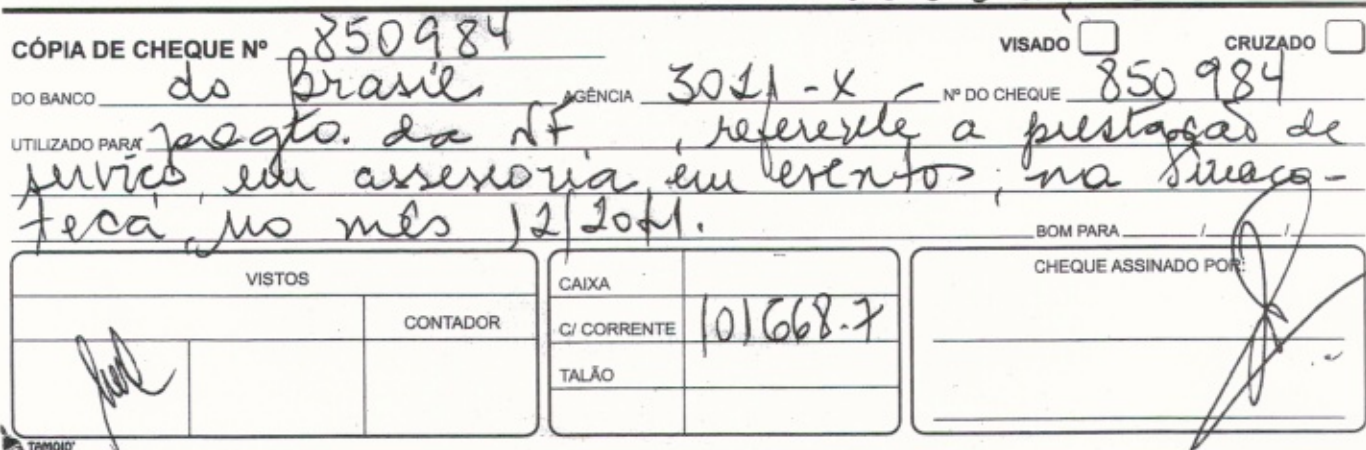 CÓPIA DE CHEQUE Nº 850984 VISADO CRUZADO
DO BANCO do Brasil AGÊNCIA 3011-X Nº DO CHEQUE 850984
UTILIZADO PARA pagto. da NF , referente a prestação de
serviço em assessoria em eventos, na
teca, no mês 12/2011.
BOM PARA / /
VISTOS
CONTADOR
CAIXA
C/ CORRENTE 101668-7
TALÃO
CHEQUE ASSINADO POR:
TAMOIO